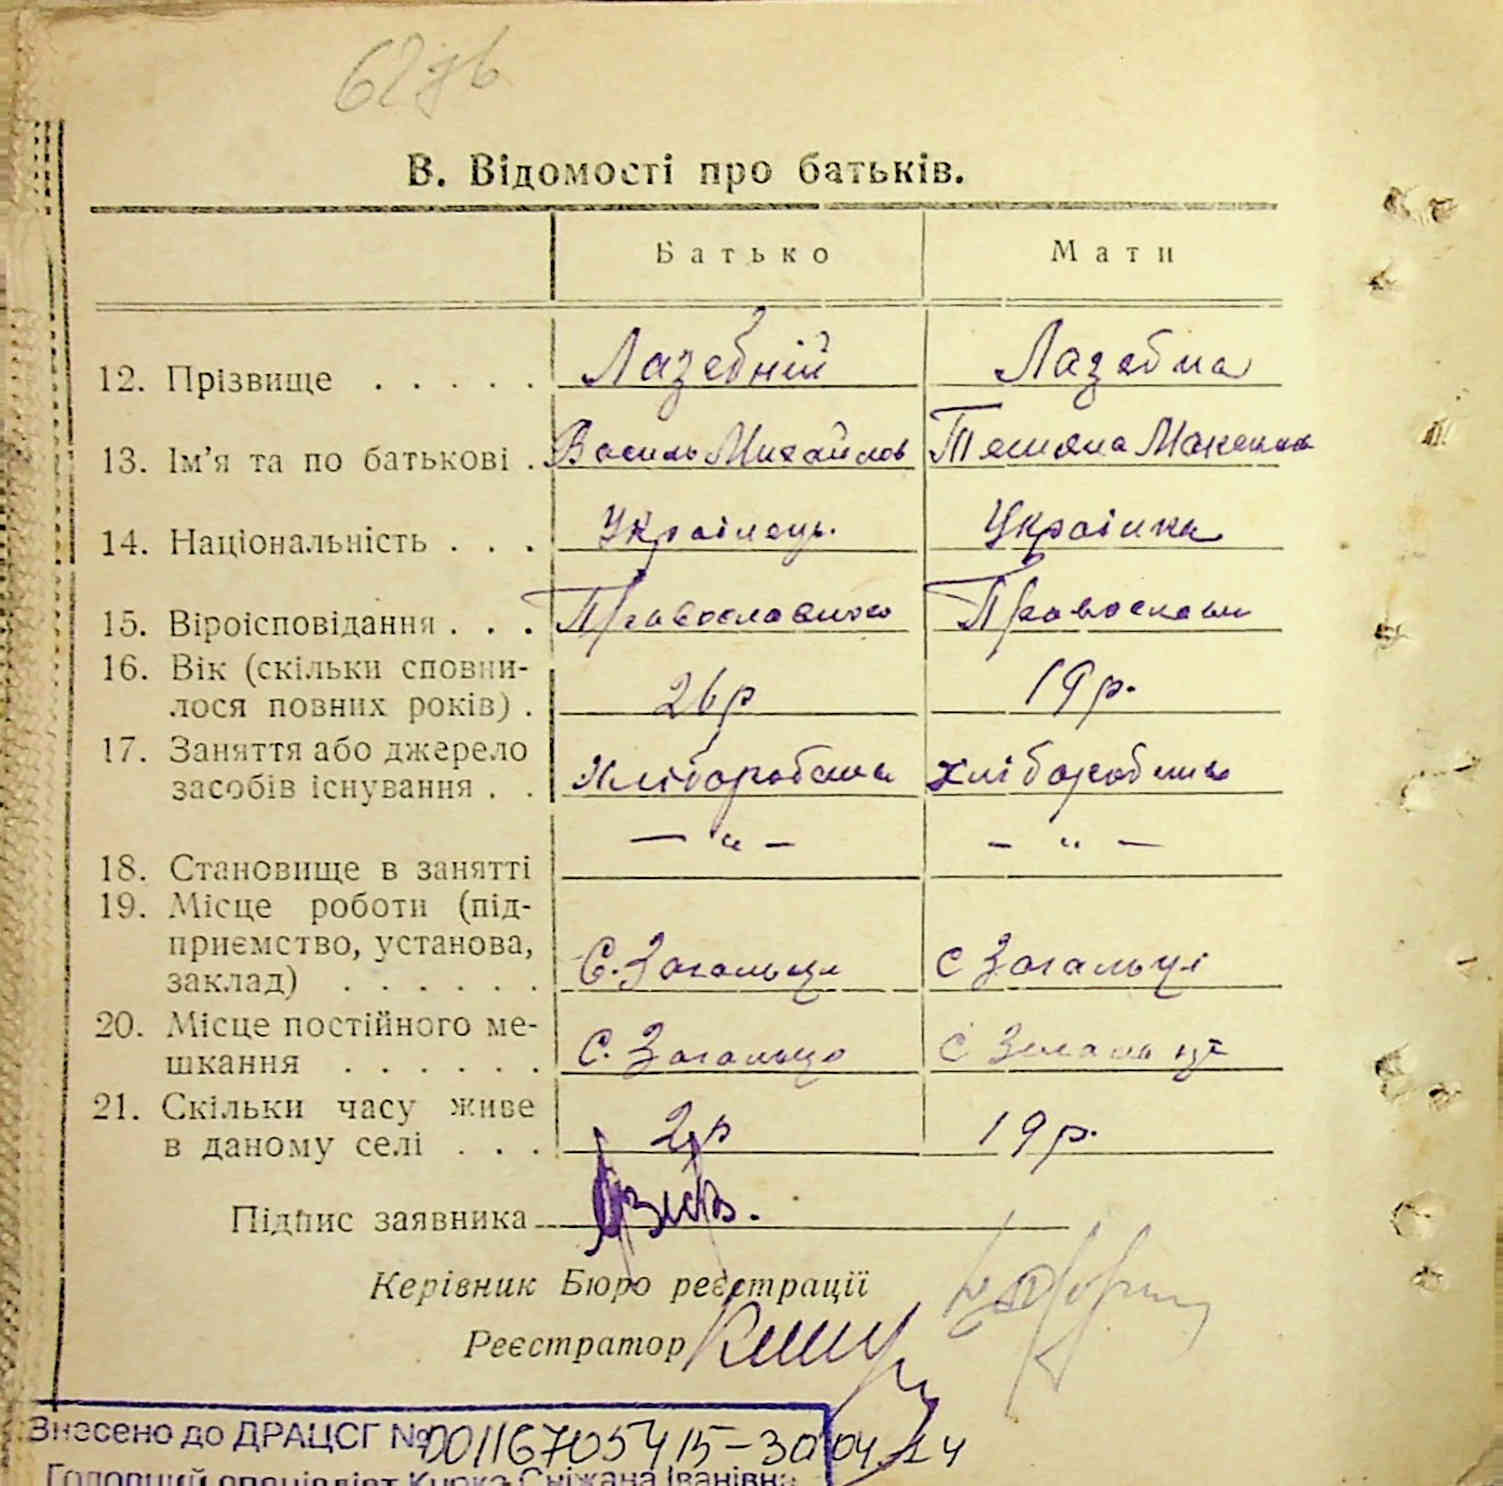 В. Відомості про батьків.
Батько Мати
12. Прізвище . . . . . Лазебній Лазебна
13. Ім'я та по батькові . Василь Михайлов Тетяна Максимов
14. Національність . . . Українець. Українка
15. Віроісповідання . . . Православного Православн
16. Вік (скільки сповни-
лося повних років) . 26р 19р.
17. Заняття або джерело
засобів існування . . Хліборобства хліборобство
— " — - " —
18. Становище в занятті
19. Місце роботи (під-
приємство, установа,
заклад) . . . . . . С. Загальці С Загальці
20. Місце постійного ме-
шкання . . . . . . С. Загальці С Загальці
21. Скільки часу живе
в даному селі . . . 2р 19р.
Підпис заявника
Керівник Бюро реєстрації
Реєстратор
Знесено до ДРАЦСГ № 00116705415-30 04 24
Головний спеціаліст Кирко Сніжана Іванівна